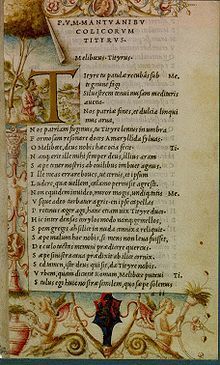 P. V. M. MANTVANI BV
COLICORVM
TITYRVS.
Melibœus. Tityrus.
Tityre tu patulæ recubās sub Me.
tegmine fagi
Siluestrem tenui musam meditaris
auena.
Nos patriæ fines, et dulcia linqui
mus arua.
Nos patriam fugimus, tu Tityre lentus in umbra
Formosam resonare doces Amaryllida syluas.
O Melibœe, deus nobis hæc otia fecit. Ti.
Nanq; erit ille mihi semper deus, illius aram
Sæpe tener nostris ab ouilibus imbuet agnus.
Ille meas errare boues, ut cernis, et ipsum
Ludere, quæ uellem, calamo permisit agresti.
Non equidem inuideo, miror magis, undiq; totis Me.
Vsque adeo turbatur agris. en ipse capellas
Protinus æger ago, hanc etiam uix Tityre duco.
Hic inter densas corylos modo nanq; gemellos,
Spem gregis ah silice in nuda connixa reliquit.
Sæpe malum hoc nobis, si mens non læua fuisset,
De cœlo tactas memini prædicere quercus.
Sæpe sinistra caua prædixit ab ilice cornix.
Sed tamen, iste deus qui sit, da Tityre nobis.
Vrbem, quam dicunt Romam, Melibœe putaui Ti.
Stultus ego huic nostræ similem, quo sæpe solemus